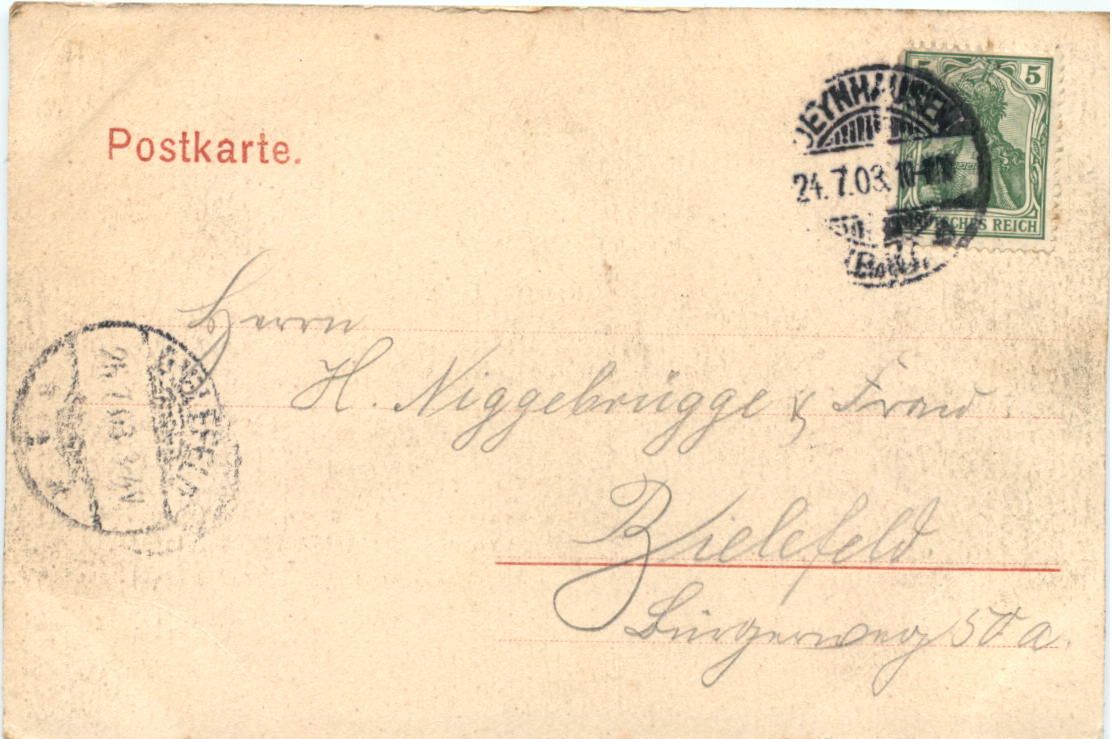 Postkarte.
OEYNHAUSEN
24.7.03. 10-11
(Bad)
5 5
DEUTSCHES REICH
BIELEFELD
Herrn
H. Niggebrügge & Frau.
Bielefeld
Bürgerweg